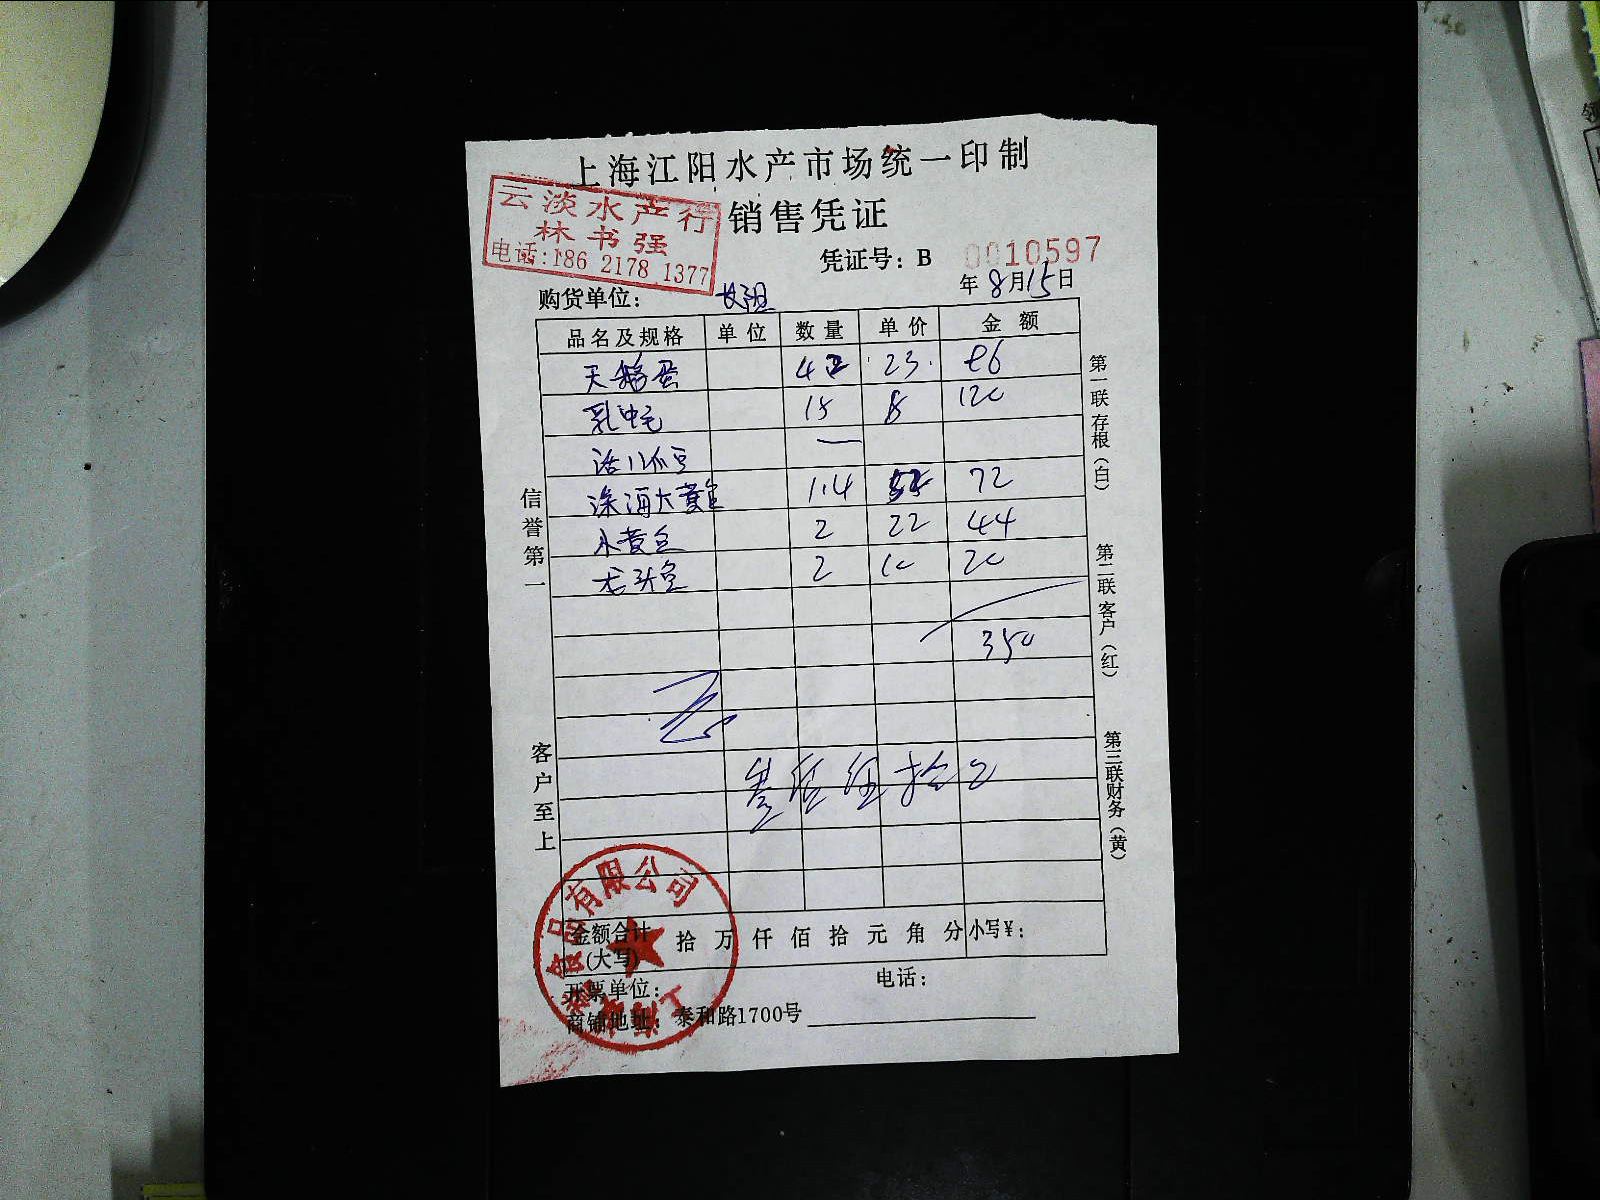 上海江阳水产市场统一印制
云淡水产行
林书强
电话:186 2178 1377
销售凭证
凭证号: B 0010597
年 8月15日
购货单位:
品名及规格 单位 数量 单价 金额
天鹅蛋 42 23. 86
乳蚶 15 8 120
活 —
深海大黄鱼 1.4 52 72
小黄鱼 2 22 44
龙头鱼 2 10 20
350
叁佰伍拾元
金额合计(大写) 拾 万 仟 佰 拾 元 角 分 小写¥:
开票单位: 电话:
商铺地址: 泰和路1700号
信誉第一
客户至上
第一联存根(白)
第二联客户(红)
第三联财务(黄)
食品有限公司